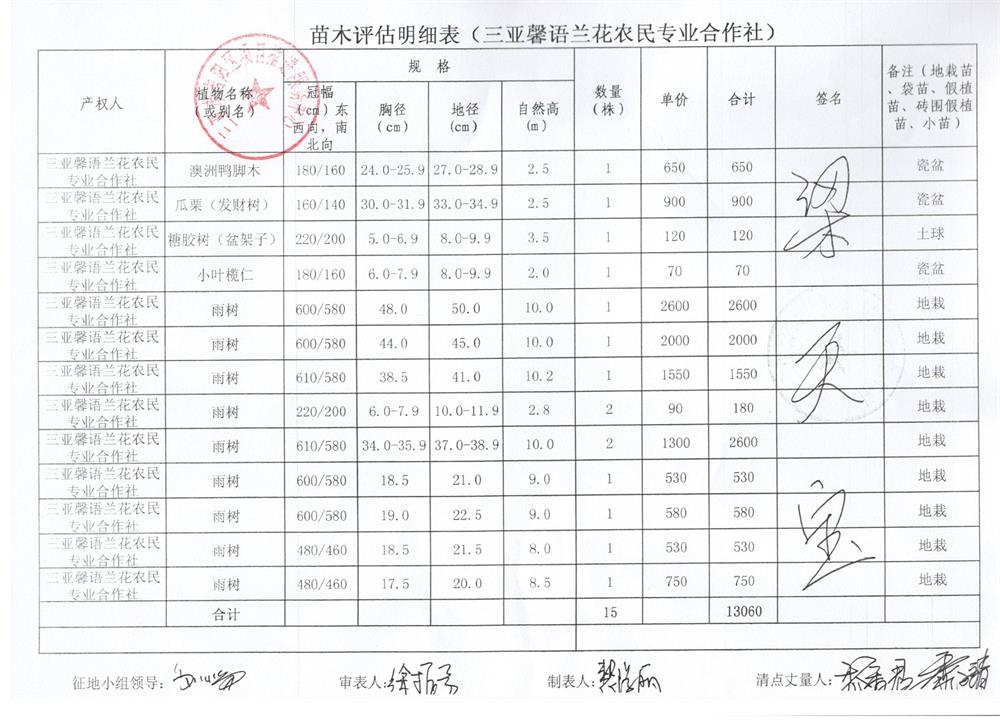 苗木评估明细表（三亚馨语兰花农民专业合作社）
产权人 植物名称（或别名） 规 格 数量（株） 单价 合计 签名 备注（地栽苗、袋苗、假植苗、砖围假植苗、小苗）
冠幅（cm）东西向，南北向 胸径（cm） 地径（cm） 自然高（m）
三亚馨语兰花农民专业合作社 澳洲鸭脚木 180/160 24.0-25.9 27.0-28.9 2.5 1 650 650 瓷盆
三亚馨语兰花农民专业合作社 瓜栗（发财树） 160/140 30.0-31.9 33.0-34.9 2.5 1 900 900 瓷盆
三亚馨语兰花农民专业合作社 糖胶树（盆架子） 220/200 5.0-6.9 8.0-9.9 3.5 1 120 120 土球
三亚馨语兰花农民专业合作社 小叶榄仁 180/160 6.0-7.9 8.0-9.9 2.0 1 70 70 瓷盆
三亚馨语兰花农民专业合作社 雨树 600/580 48.0 50.0 10.0 1 2600 2600 地栽
三亚馨语兰花农民专业合作社 雨树 600/580 44.0 45.0 10.0 1 2000 2000 地栽
三亚馨语兰花农民专业合作社 雨树 610/580 38.5 41.0 10.2 1 1550 1550 地栽
三亚馨语兰花农民专业合作社 雨树 220/200 6.0-7.9 10.0-11.9 2.8 2 90 180 地栽
三亚馨语兰花农民专业合作社 雨树 610/580 34.0-35.9 37.0-38.9 10.0 2 1300 2600 地栽
三亚馨语兰花农民专业合作社 雨树 600/580 18.5 21.0 9.0 1 530 530 地栽
三亚馨语兰花农民专业合作社 雨树 600/580 19.0 22.5 9.0 1 580 580 地栽
三亚馨语兰花农民专业合作社 雨树 480/460 18.5 21.5 8.0 1 530 530 地栽
三亚馨语兰花农民专业合作社 雨树 480/460 17.5 20.0 8.5 1 750 750 地栽
合计 15 13060
征地小组领导： 审表人： 制表人： 清点丈量人：